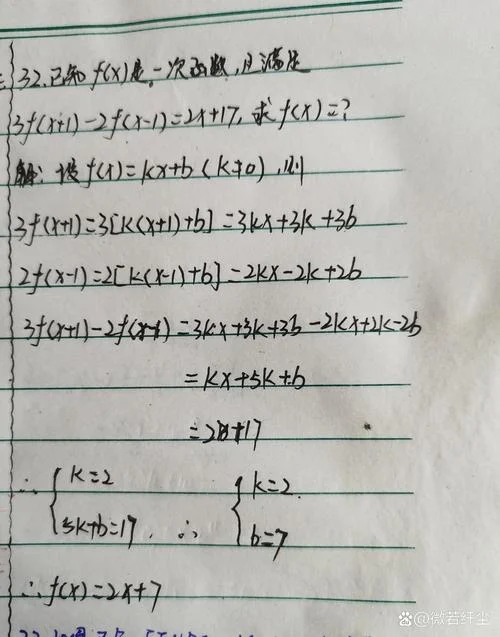 32. 已知 f(x)是一次函数,且满足
3f(x+1)-2f(x-1)=2x+17, 求 f(x)=?
解: 设 f(x)=kx+b (k≠0), 则
3f(x+1)=3[k(x+1)+b]=3kx+3k+3b
2f(x-1)=2[k(x-1)+b]=2kx-2k+2b
3f(x+1)-2f(x-1)=3kx+3k+3b-2kx+2k-2b
=kx+5k+b
=2x+17
∴ { k=2 5k+b=17. ∴ { k=2 b=7
∴ f(x)=2x+7
@微若纤尘